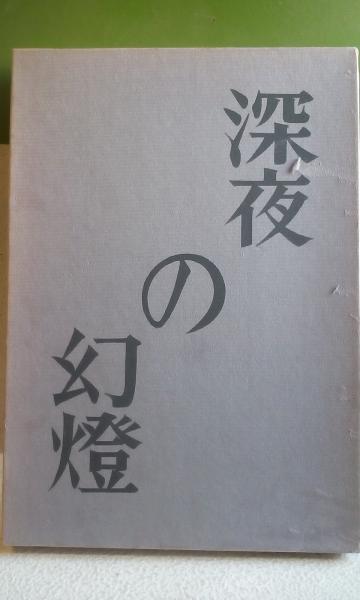 深夜
の
幻燈